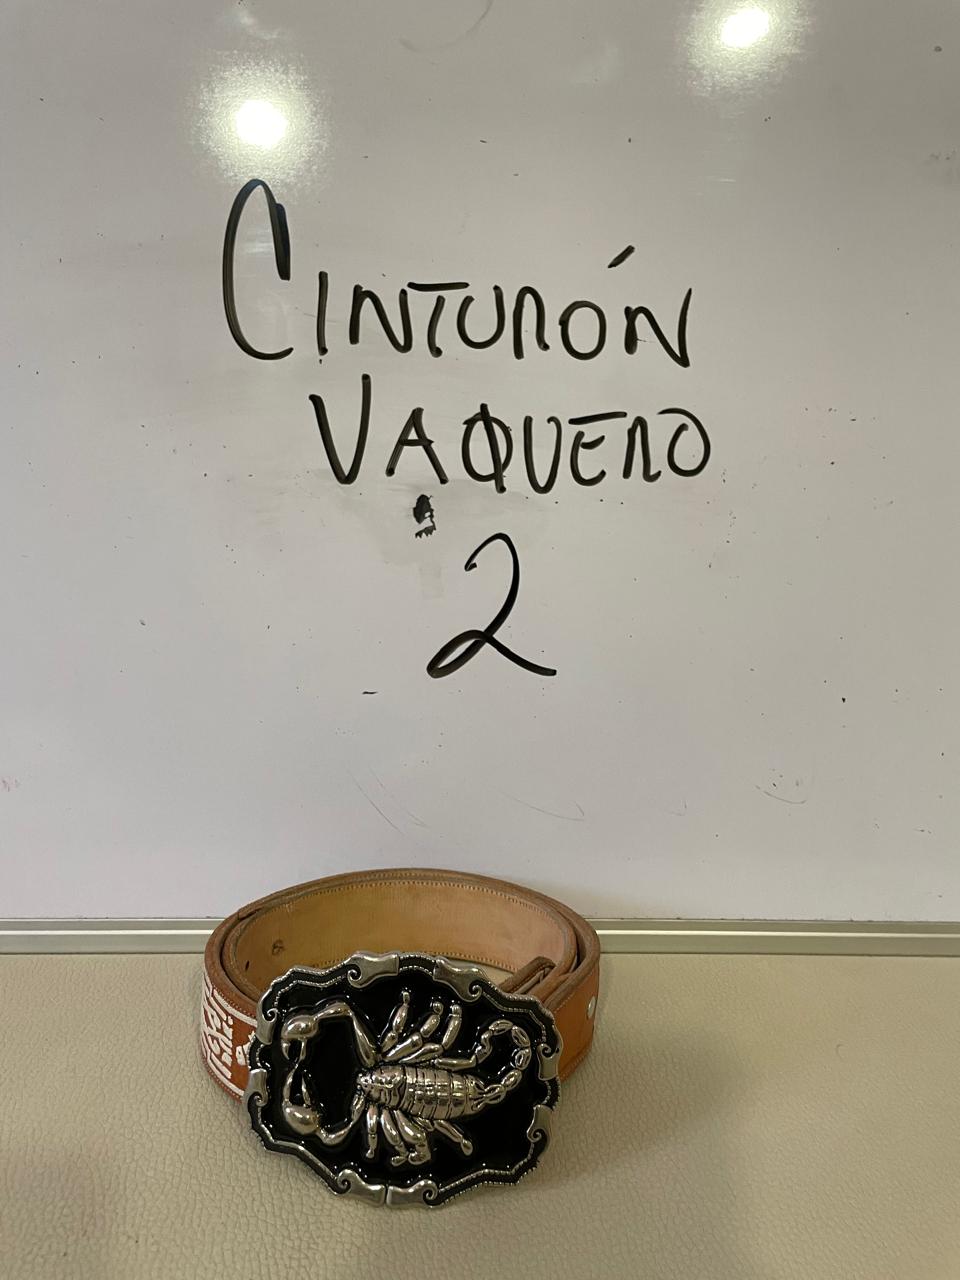 CINTURÓN
VAQUERO
2